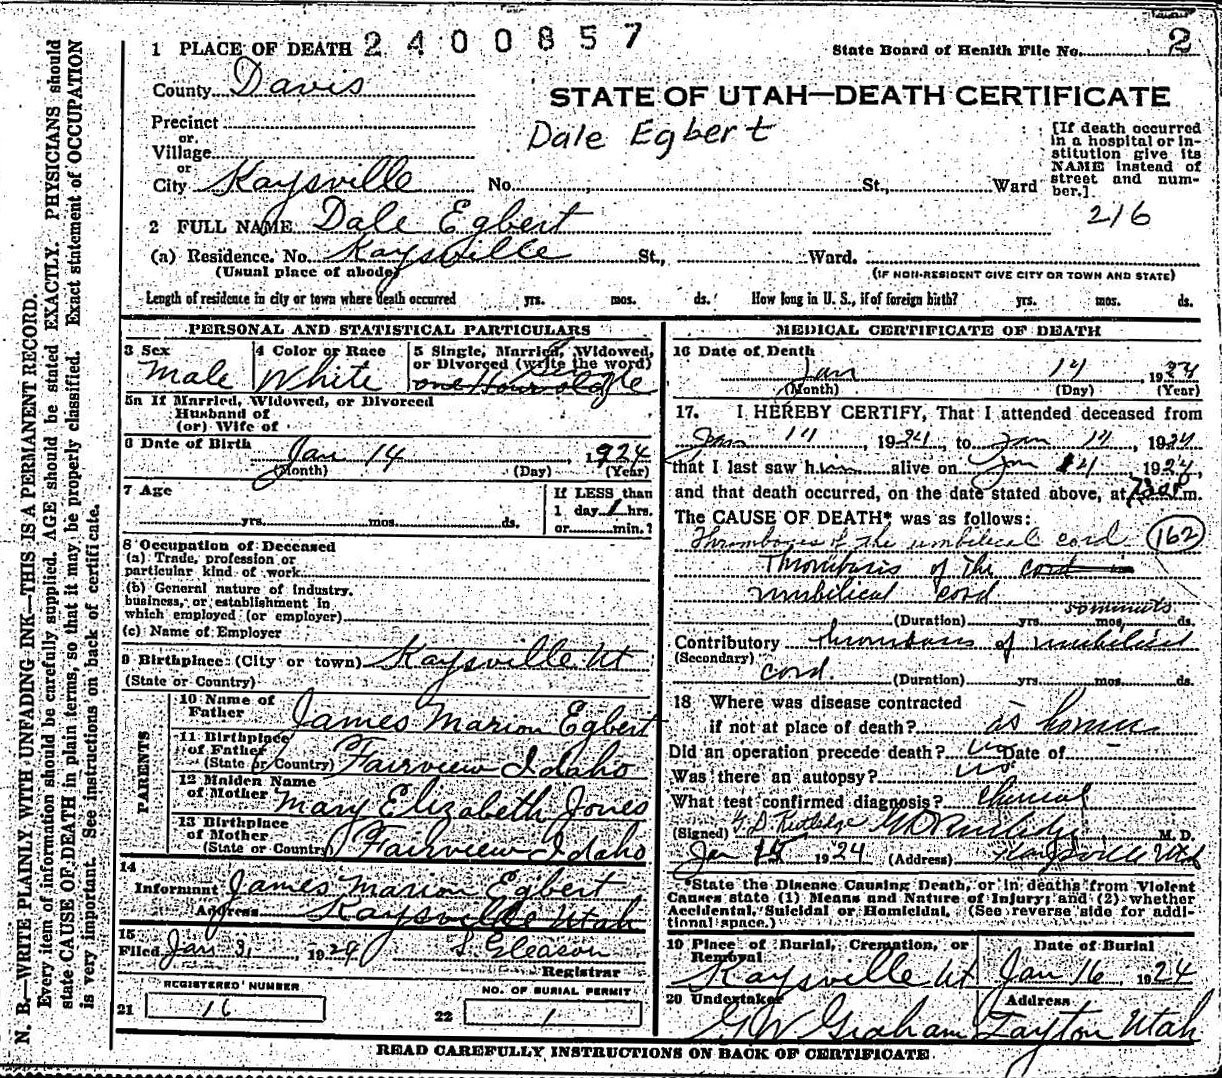 1 PLACE OF DEATH 2400857
State Board of Health File No. 2
County Davis
STATE OF UTAH—DEATH CERTIFICATE
Precinct
or
Village
or
City Kaysville No. ; St., Ward
Dale Egbert
[If death occurred
in a hospital or in-
stitution give its
NAME instead of
street and num-
ber.]
216
2 FULL NAME Dale Egbert
(a) Residence. No. Kaysville St., Ward.
(Usual place of abode) (IF NON-RESIDENT GIVE CITY OR TOWN AND STATE)
Length of residence in city or town where death occurred yrs. mos. ds. How long in U. S., if of foreign birth? yrs. mos. ds.
PERSONAL AND STATISTICAL PARTICULARS
3 Sex
Male
4 Color or Race
White
5 Single, Married, Widowed,
or Divorced (write the word)
Single
one Hour old
5a If Married, Widowed, or Divorced
Husband of
(or) Wife of
6 Date of Birth Jan 14, 1924
(Month) (Day) (Year)
7 Age
yrs. mos. ds.
If LESS than
1 day 1 hrs.
or min.?
8 Occupation of Deceased
(a) Trade, profession or
particular kind of work
(b) General nature of industry,
business, or establishment in
which employed (or employer)
(c) Name of Employer
9 Birthplace (City or town) Kaysville Ut
(State or Country)
PARENTS
10 Name of
Father James Marion Egbert
11 Birthplace
of Father
(State or Country) Fairview Idaho
12 Maiden Name
of Mother Mary Elizabeth Jones
13 Birthplace
of Mother
(State or Country) Fairview Idaho
14
Informant James Marion Egbert
Address Kaysville Utah
15
Filed Jan 3, 1924 S. Gleason
Registrar
REGISTERED NUMBER
21 16
NO. OF BURIAL PERMIT
22 1
MEDICAL CERTIFICATE OF DEATH
16 Date of Death
Jan 14, 1924
(Month) (Day) (Year)
17. I HEREBY CERTIFY, That I attended deceased from
Jan 14, 1924, to Jan 14, 1924
that I last saw him alive on Jan 14, 1924,
and that death occurred, on the date stated above, at m.
The CAUSE OF DEATH* was as follows:
Thrombosis of the umbilical cord 162
Thrombosis of the cord
umbilical cord
(Duration) yrs. mos. ds.
Contributory thrombosis of umbilical
(Secondary)
cord. (Duration) yrs. mos. ds.
18 Where was disease contracted
if not at place of death? at home
Did an operation precede death? no Date of
Was there an autopsy? no
What test confirmed diagnosis?
(Signed) M. D.
Jan 15 1924 (Address) Kaysville Utah
*State the Disease Causing Death, or in deaths from Violent
Causes state (1) Means and Nature of Injury; and (2) whether
Accidental, Suicidal or Homicidal. (See reverse side for addi-
tional space.)
19 Place of Burial, Cremation, or
Removal
Kaysville Ut
Date of Burial
Jan 16, 1924
20 Undertaker
G W Graham
Address
Layton Utah
READ CAREFULLY INSTRUCTIONS ON BACK OF CERTIFICATE
N. B.—WRITE PLAINLY WITH UNFADING INK—THIS IS A PERMANENT RECORD.
Every item of information should be carefully supplied. AGE should be stated EXACTLY. PHYSICIANS should
state CAUSE OF DEATH in plain terms, so that it may be properly classified. Exact statement of OCCUPATION
is very important. See instructions on back of certificate.